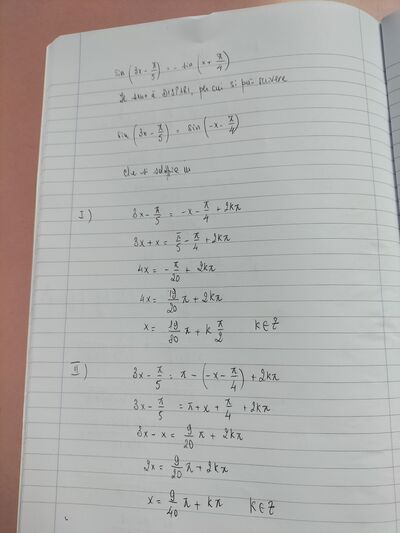 sin (3x - π/5) = - sin (x + π/4)
Il seno è DISPARI, per cui si può scrivere
sin (3x - π/5) = sin (-x - π/4)
che si in
I) 3x - π/5 = -x - π/4 + 2kπ
3x + x = π/5 - π/4 + 2kπ
4x = - π/20 + 2kπ
4x = 19/20 π + 2kπ
x = 19/80 π + k π/2 k∈Z
II) 3x - π/5 = π - (-x - π/4) + 2kπ
3x - π/5 = π + x + π/4 + 2kπ
3x - x = 9/20 π + 2kπ
2x = 9/20 π + 2kπ
x = 9/40 π + kπ k∈Z